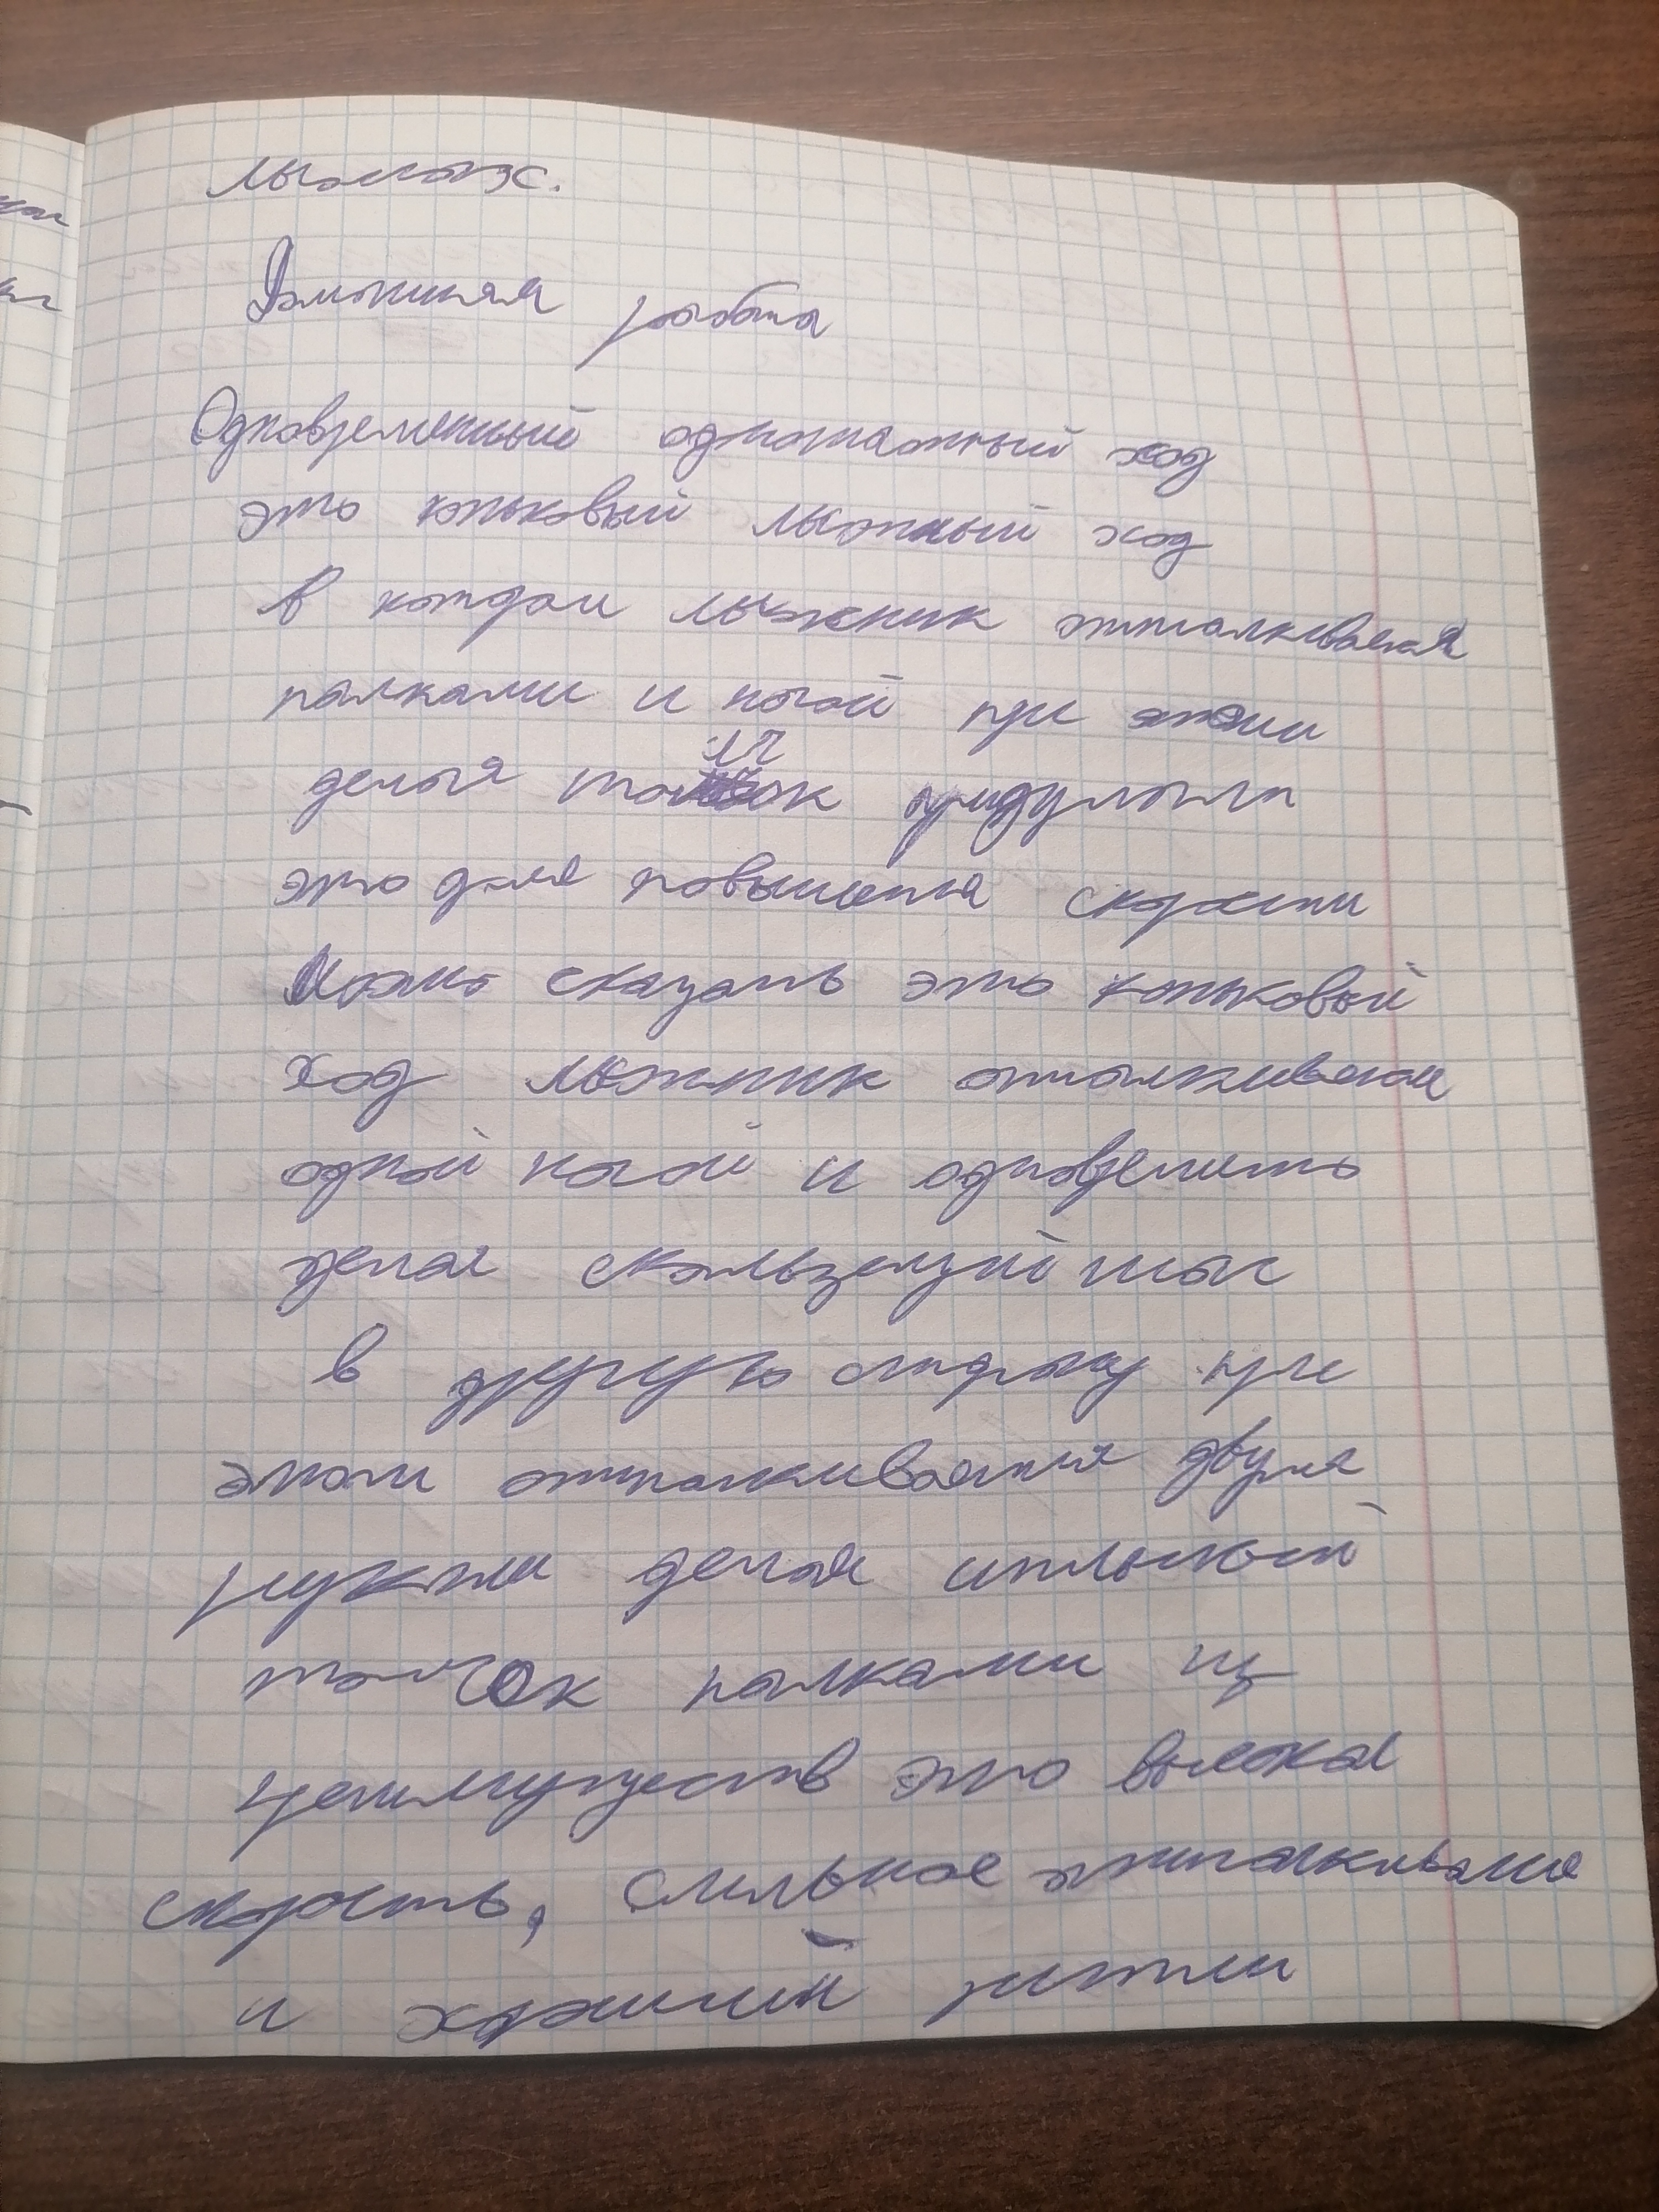 Домашняя работа
Одновременный одношажный ход
это коньковый лыжный ход
в котдом лыжник отталкивается
палками и ногой при этом
делая толчок придумали
это для повышения скорости
Можно сказать это коньковый
ход лыжник отталкивается
одной ногой и одновременно
делая скользещий шаг
в другую сторону при
этом отталкивается двумя
руками делая сильный
толчок палками из
приимуществ это высокая
скорость, сильное отталкивание
и хороший ритм